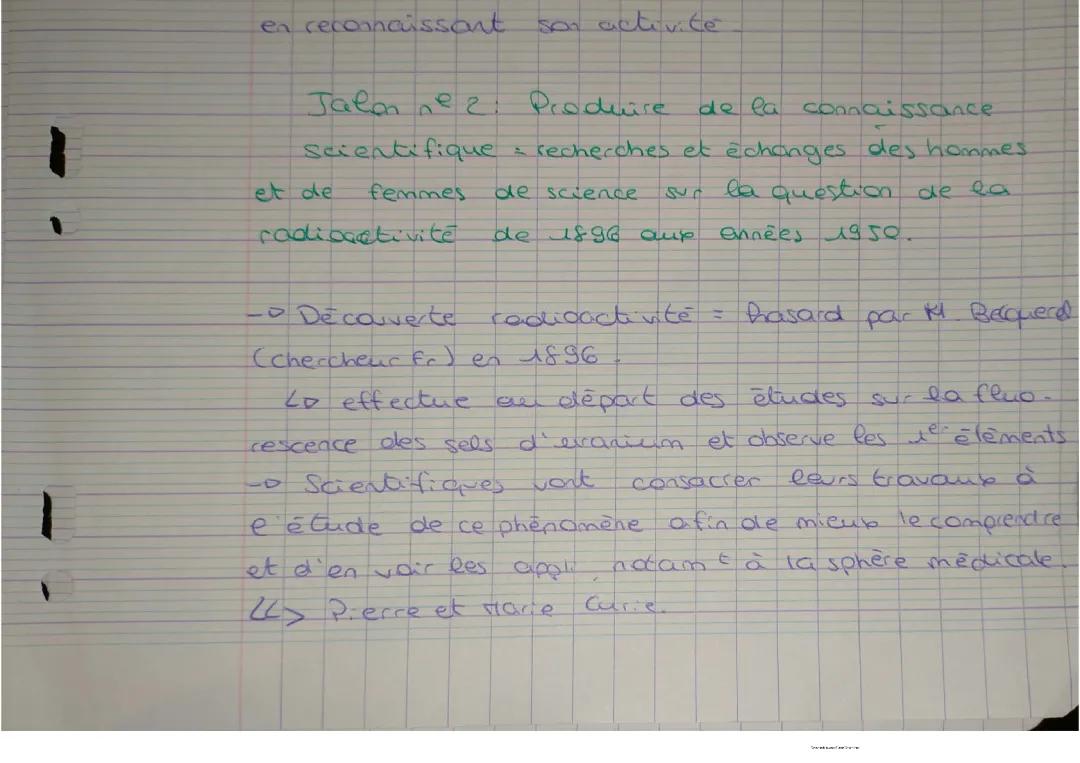 en reconnaissant son activité.
Jalon n° 2 : Produire de la connaissance
scientifique = recherches et échanges des hommes
et de femmes de science sur la question de la
radioactivité de 1896 aux années 1950.
→ Découverte radioactivité = hasard par H. Becquerel
(chercheur fr) en 1896.
↳ effectue au départ des études sur la fluo-
rescence des sels d'uranium et observe les 1er éléments
→ Scientifiques vont consacrer leurs travaux à
l'étude de ce phénomène afin de mieux le comprendre
et d'en voir les appli, notamt à la sphère médicale.
↳> Pierre et Marie Curie.